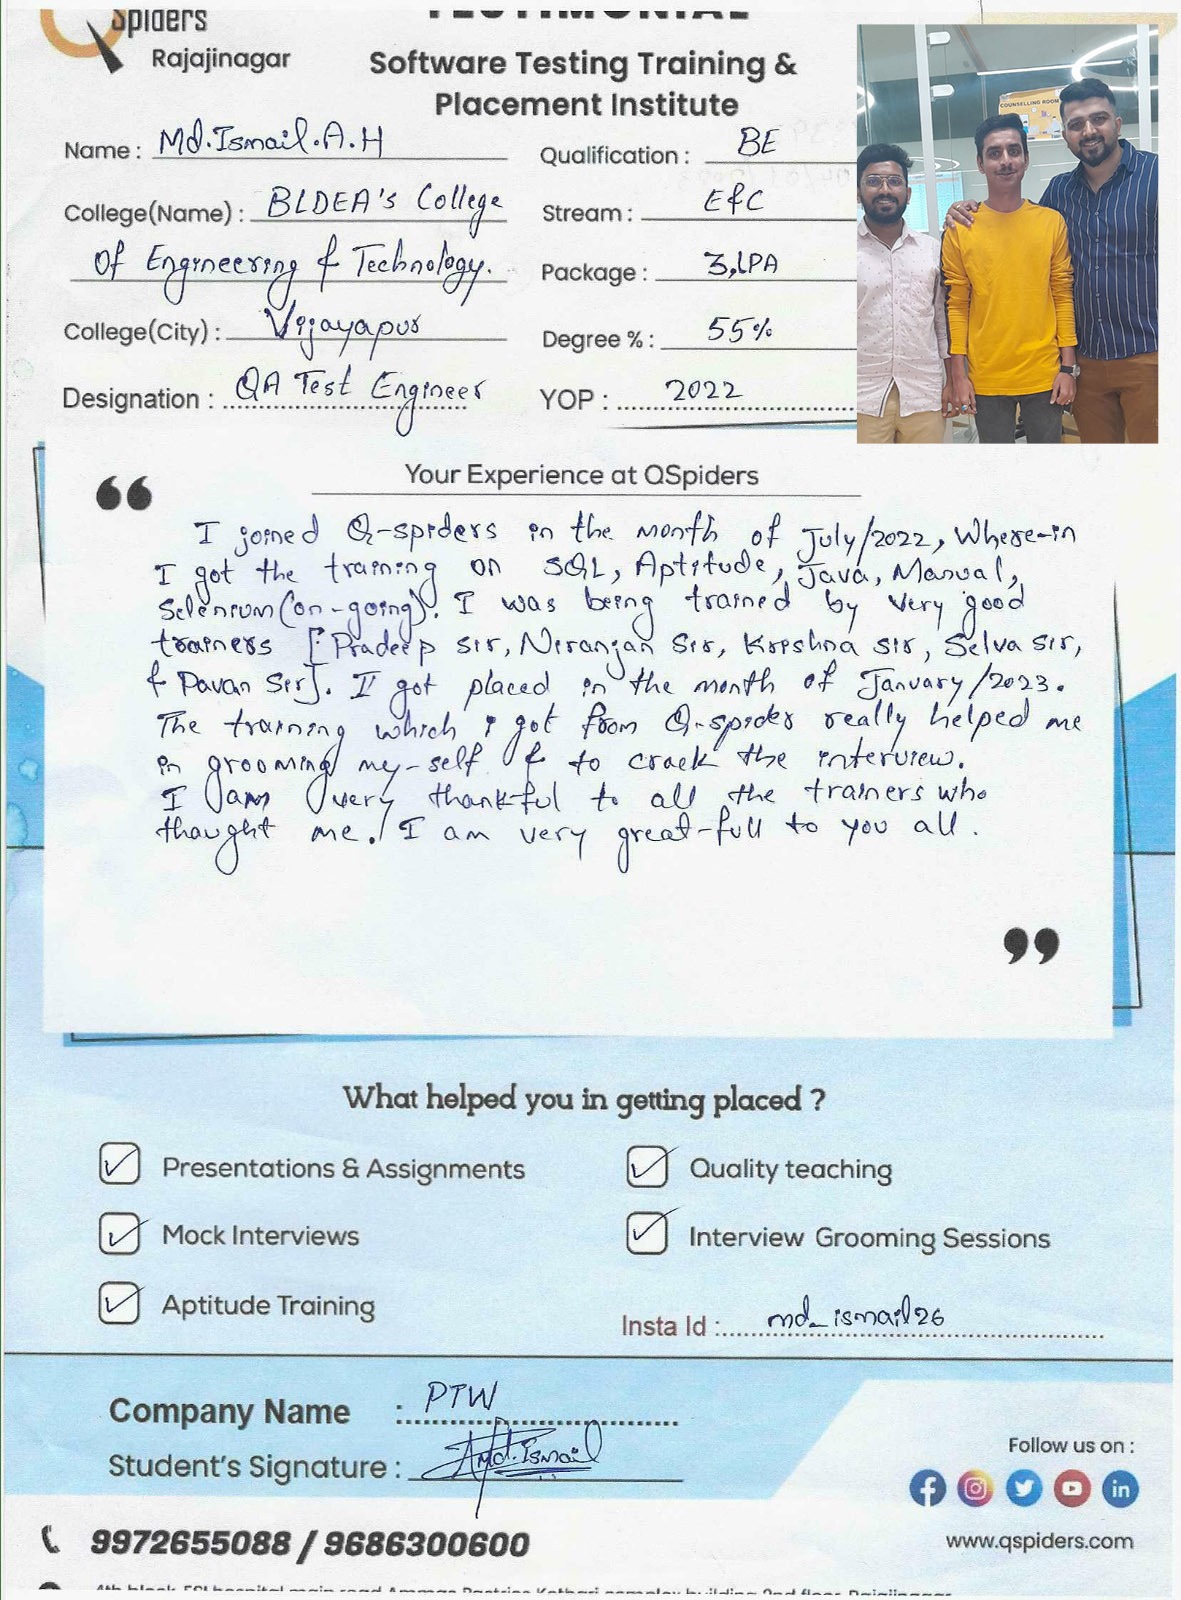 QSpiders
TESTIMONIAL
Rajajinagar
Software Testing Training &
Placement Institute
COUNSELLING ROOM
Name : Md.Ismail.A.H
Qualification : BE
College(Name) : BLDEA's College
Stream : E&C
Of Engineering & Technology.
Package : 3,LPA
College(City) : Vijayapur
Degree % : 55%
Designation : QA Test Engineer
YOP : 2022
Your Experience at QSpiders
I joined Q-spiders in the month of July/2022, Where-in
I got the training on SQL, Aptitude, Java, Manual,
Selenium(on-going). I was being trained by very good
trainers [Pradeep sir, Niranjan Sir, Krishna sir, Selva sir,
& Pavan Sir]. I got placed in the month of January/2023.
The training which i got from Q-spider really helped me
in grooming my-self & to crack the interview.
I am very thankful to all the trainers who
thaught me. I am very great-full to you all.
What helped you in getting placed ?
Presentations & Assignments
Quality teaching
Mock Interviews
Interview Grooming Sessions
Aptitude Training
Insta Id : md_ismail26
Company Name : PTW
Student's Signature : Md.Ismail
Follow us on :
9972655088 / 9686300600
www.qspiders.com